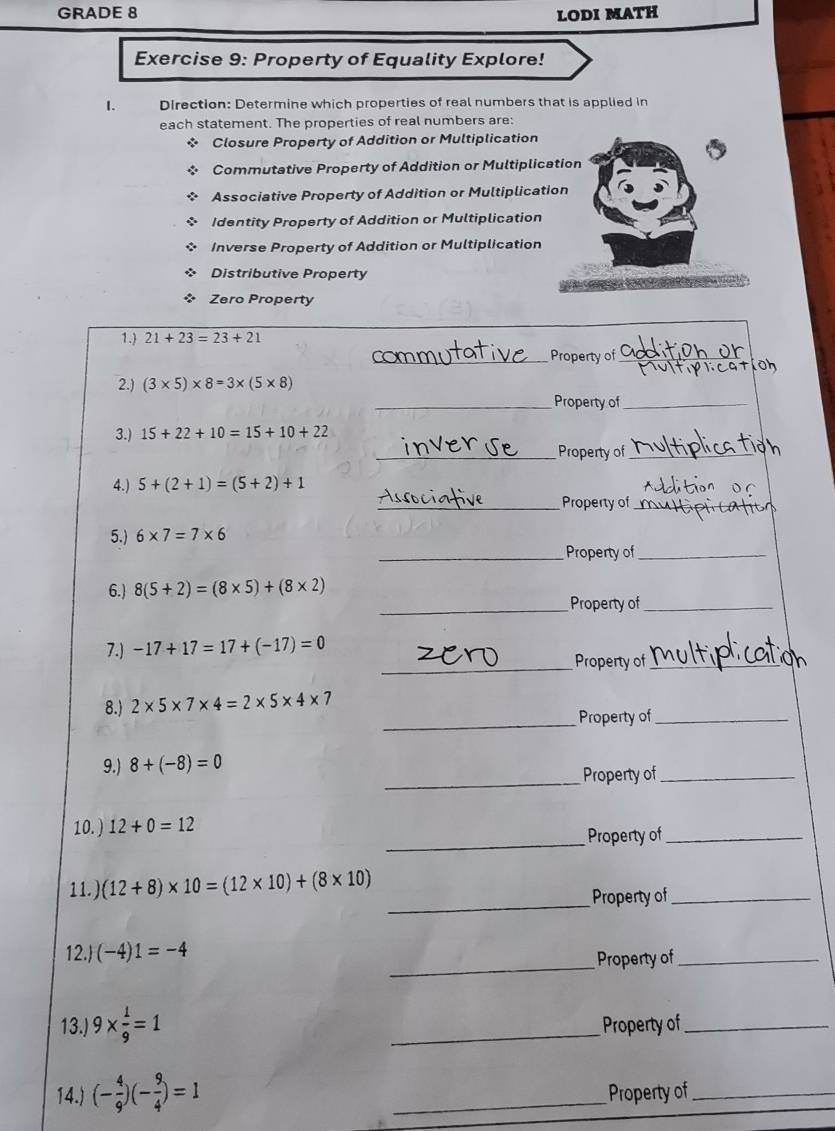 GRADE 8
LODI MATH
Exercise 9: Property of Equality Explore!
I. Direction: Determine which properties of real numbers that is applied in
each statement. The properties of real numbers are:
❖ Closure Property of Addition or Multiplication
❖ Commutative Property of Addition or Multiplication
❖ Associative Property of Addition or Multiplication
❖ Identity Property of Addition or Multiplication
❖ Inverse Property of Addition or Multiplication
❖ Distributive Property
❖ Zero Property
1.) 21 + 23 = 23 + 21
commutative Property of addition or
Multiplication
2.) (3 × 5) × 8 = 3× (5 × 8)
Property of
3.) 15 + 22 + 10 = 15 + 10 + 22
inverse Property of multiplication
4.) 5 + (2 + 1) = (5 + 2) + 1
Associative Property of Addition or
multiplication
5.) 6 × 7 = 7 × 6
Property of
6.) 8(5 + 2) = (8 × 5) + (8 × 2)
Property of
7.) −17 + 17 = 17 + (−17) = 0
zero Property of multiplication
8.) 2 × 5 × 7 × 4 = 2 × 5 × 4 × 7
Property of
9.) 8 + (−8) = 0
Property of
10. ) 12 + 0 = 12
Property of
11. )(12 + 8) × 10 = (12 × 10) + (8 × 10)
Property of
12.) (−4)1 = −4
Property of
13.) 9 × 1/9 = 1
Property of
14.) (−4/9)(−9/4) = 1
Property of